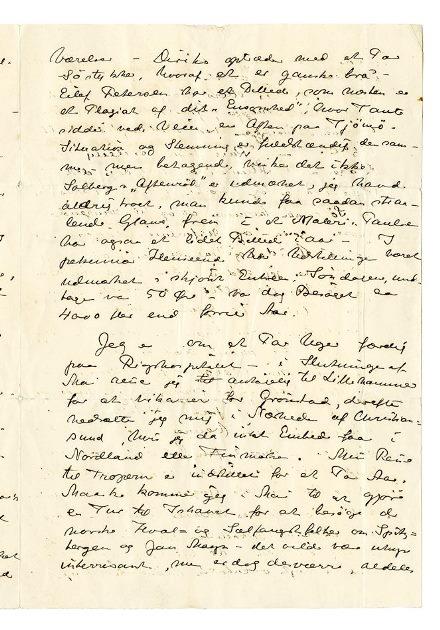 Værelse – Diriks optræder med et Par
Søstykker, hvoraf et er ganske bra –
Eilef Petersen har et Billede, som næsten er
et Plagiat af dit „Ensomhed", hvor Tante
sidder ved Veien en Aften paa Tjømø.
Situation og Stemning er fuldstændig den sam-
me, men betagende virker det ikke.
Solbergs „Aftenrøde" er udmærket, jeg havde
aldrig troet, man kunde faa saadan straa-
lende Glans frem i et Maleri. Paulsen
har ogsaa et lidet Billed i aar – I
pekuniær Henseende har Udstillingen været
udmærket, skjønt Entréen Søndagen und-
tagen var 50 Øre – var dog Besøget ca
4000 fler end forrige Aar.
Jeg er om et Par Uger færdig
paa Rigshospitalet – i Slutningen af
Mai reiser jeg antagelig til Lillehammer
for at vikariere for Grønstad, derefter
nedsætter jeg mig i Nærheden af Christian-
sund, hvis jeg da intet Embede faar i
Nordland eller Finmarken. Min Reise
til Troperne er indstillet for et Par Aar.
Maaske kommer jeg i Mai til at gjøre
en Tur til Ishavet for at besøge de
norske Hval- og Sælfangstfelter om Spits-
bergen og Jan Mayen – det vilde være uhyre
interessant, men er dog desværre, aldeles